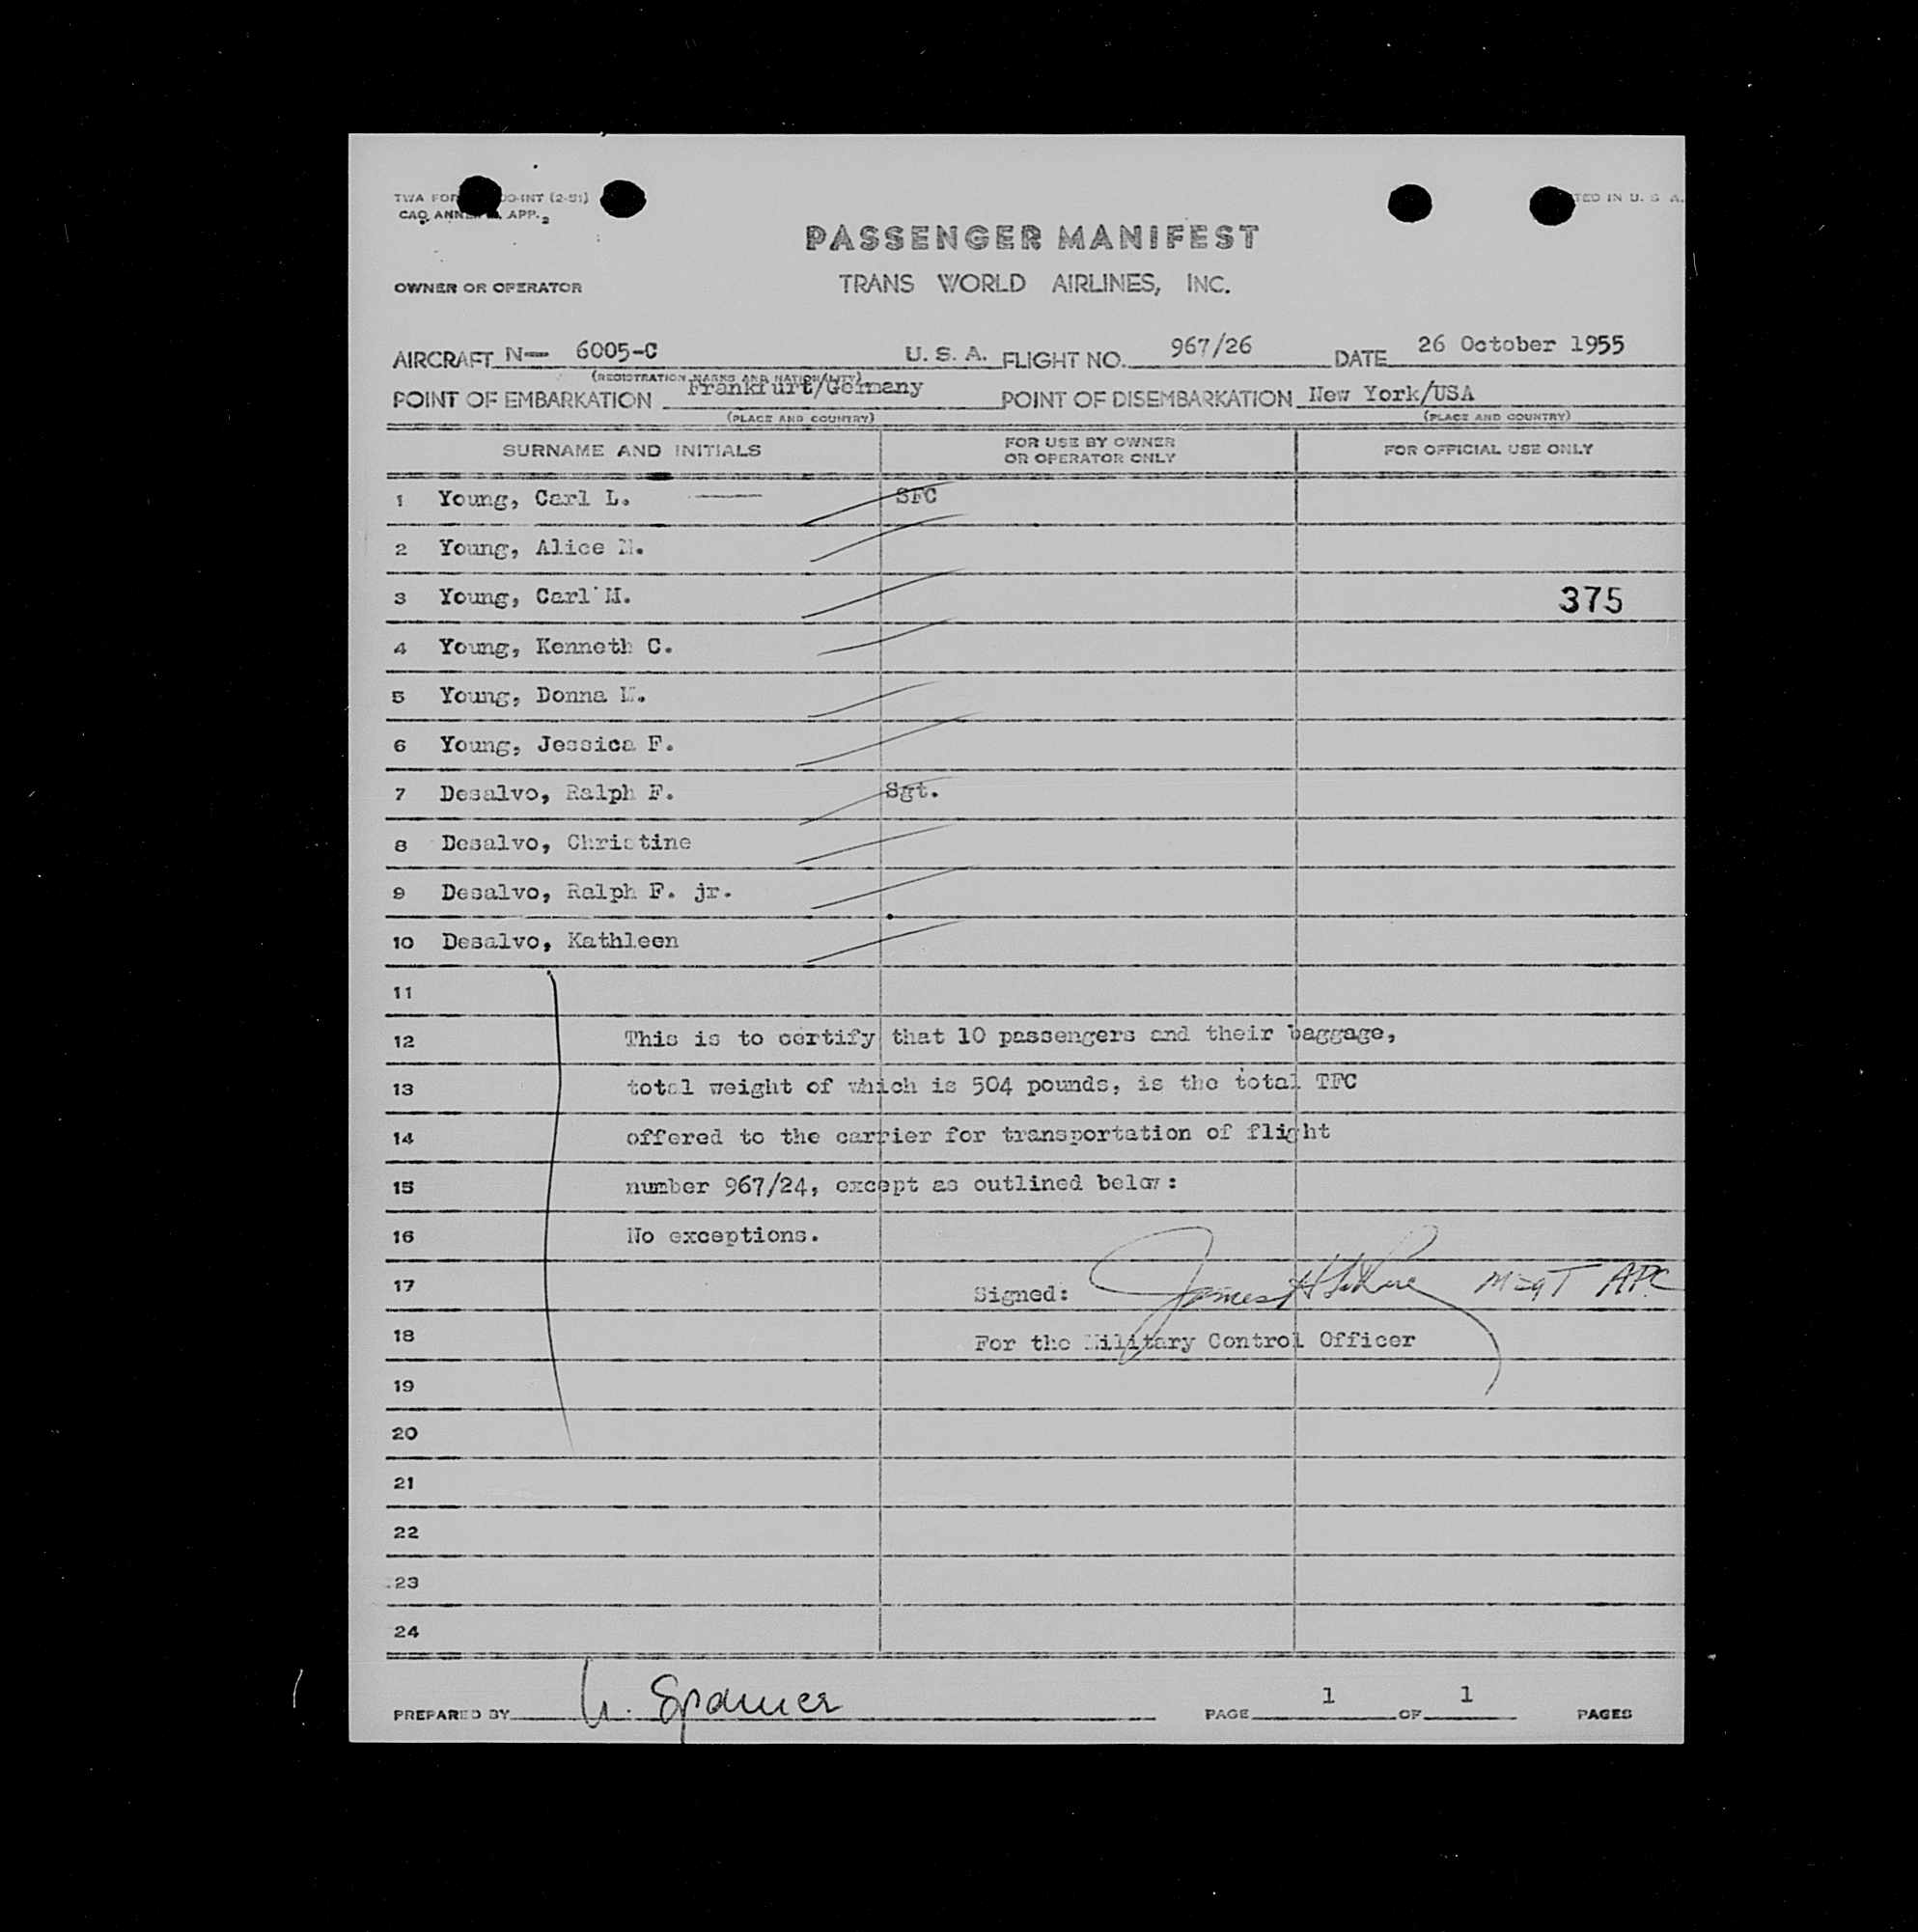 TWA FOR OO-INT (2-51)
CAO. ANNE APP. 2
TED IN U. S. A.
PASSENGER MANIFEST
OWNER OR OPERATOR
TRANS WORLD AIRLINES, INC.
AIRCRAFT N— 6005-C U. S. A. FLIGHT NO. 967/26 DATE 26 October 1955
(REGISTRATION MARKS AND NATIONALITY)
POINT OF EMBARKATION Frankfurt/Germany POINT OF DISEMBARKATION New York/USA
(PLACE AND COUNTRY) (PLACE AND COUNTRY)
SURNAME AND INITIALS FOR USE BY OWNER OR OPERATOR ONLY FOR OFFICIAL USE ONLY
1 Young, Carl L. SFC
2 Young, Alice M.
3 Young, Carl M. 375
4 Young, Kenneth C.
5 Young, Donna
6 Young, Jessica F.
7 Desalvo, Ralph F. Sgt.
8 Desalvo, Christine
9 Desalvo, Ralph F. jr.
10 Desalvo, Kathleen
11
12 This is to certify that 10 passengers and their baggage,
13 total weight of which is 504 pounds, is the total TFC
14 offered to the carrier for transportation of flight
15 number 967/24, except as outlined below:
16 No exceptions.
17 Signed: James H
18 For the Military Control Officer
19
20
21
22
23
24
PREPARED BY Spamer PAGE 1 OF 1 PAGES